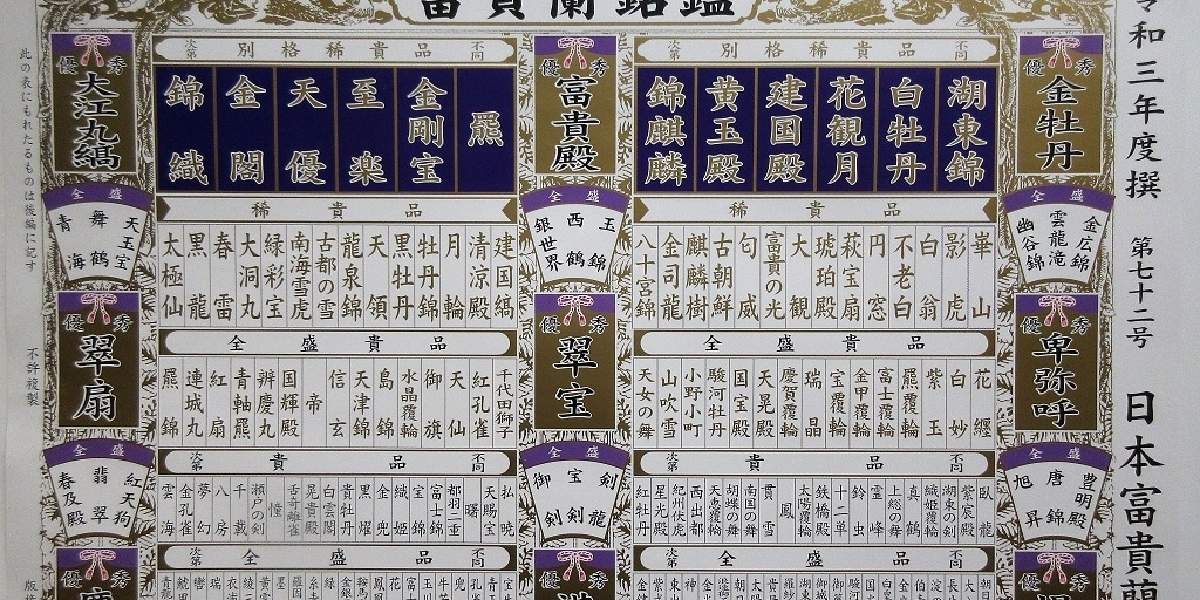 富貴蘭銘鑑
令和三年度撰 第七十二号 日本富貴蘭
優秀
金牡丹
全盛
金広錦
雲龍滝
幽谷錦
優秀
卑弥呼
全盛
豊明殿
唐錦
旭昇
優秀
次第 別格稀貴品 不同
湖東錦
白牡丹
花観月
建国殿
黄玉殿
錦麒麟
稀貴品
崋山
影虎
白翁
不老白
円窓
萩宝扇
琥珀殿
大観
富貴の光
匂威
古朝鮮
麒麟樹
金司龍
八十宮錦
全盛貴品
花纒
白妙
紫玉
羆覆輪
富士覆輪
金甲覆輪
宝覆輪
瑞晶
慶賀覆輪
天晃殿
国宝殿
駿河牡丹
小野小町
山吹雪
天女の舞
次第 貴品 不同
臥龍
紫宸殿
湖東の剣
織姫覆輪
真鶴
上総の舞
霊峰
鈴虫
十二単
鉄橋殿
太陽覆輪
鳳
貫雪
南国の舞
胡蝶の舞
天恵覆輪
西出都
紀州伏虎
星光殿
紅牡丹
次第 全盛貴品 不同
優秀
富貴殿
全盛
玉錦
西鶴
銀世界
優秀
翠宝
全盛
剣龍
宝剣
御剣
優秀
次第 別格稀貴品 不同
羆
金剛宝
至楽
天優
金閣
錦織
稀貴品
建国縞
清涼殿
月輪
牡丹錦
黒牡丹
天領
龍泉錦
古都の雪
南海雪虎
緑彩宝
大洞丸
春雷
黒龍
太極仙
全盛貴品
千代田獅子
紅孔雀
天仙
御旗
水晶覆輪
島錦
天津錦
信玄
帝
国輝殿
辨慶丸
青軸羆
紅扇
連城丸
羆錦
次第 貴品 不同
払暁
天賜宝
曙
都羽二重
富士錦
宝錦
織姫
金兜
黒燿
貴牡丹
白雲閣
晃貴殿
瀬戸の剣
千載
八房
夢幻
金孔雀
雲海
次第 全盛貴品 不同
優秀
大江丸縞
全盛
天玉宝
舞鶴
青海
優秀
翠扇
全盛
紅天狗
翡翠
春及殿
優秀
此の表にもれたるものは後編に記す
不許複製
版